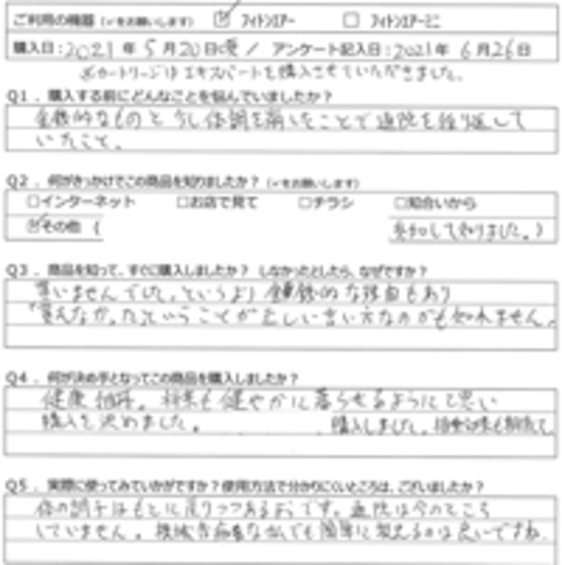 ご利用の機器（✓をお願いします） ☑ フィトンエアー □ フィトンエアーミニ
購入日：2021年5月20日頃 / アンケート記入日：2021年6月26日
※カートリッジはエキスパートを購入させていただきました。
Q1．購入する前にどんなことを悩んでいましたか？
金銭的なものと 体調を崩したことで通院を繰り返して
いたこと。
Q2．何がきっかけでこの商品を知りましたか？（✓をお願いします）
□インターネット □お店で見て □チラシ □知合いから
☑その他（ 参加して知りました。）
Q3．商品を知って、すぐに購入しましたか？ しなかったとしたら、なぜですか？
買いませんでした。というより金銭的な理由もあり
"買えなかった"ということが正しい言い方なのかも知れません。
Q4．何が決め手となってこの商品を購入しましたか？
健康維持。将来も健やかに暮らせるようにと思い
購入を決めました。 購入しました。
Q5．実際に使ってみていかがですか？使用方法で分かりにくいところは、ございましたか？
体の調子はもとに戻りつつあるようです。通院は今のところ
していません。機械音痴な でも簡単に使えるのは良いですね。